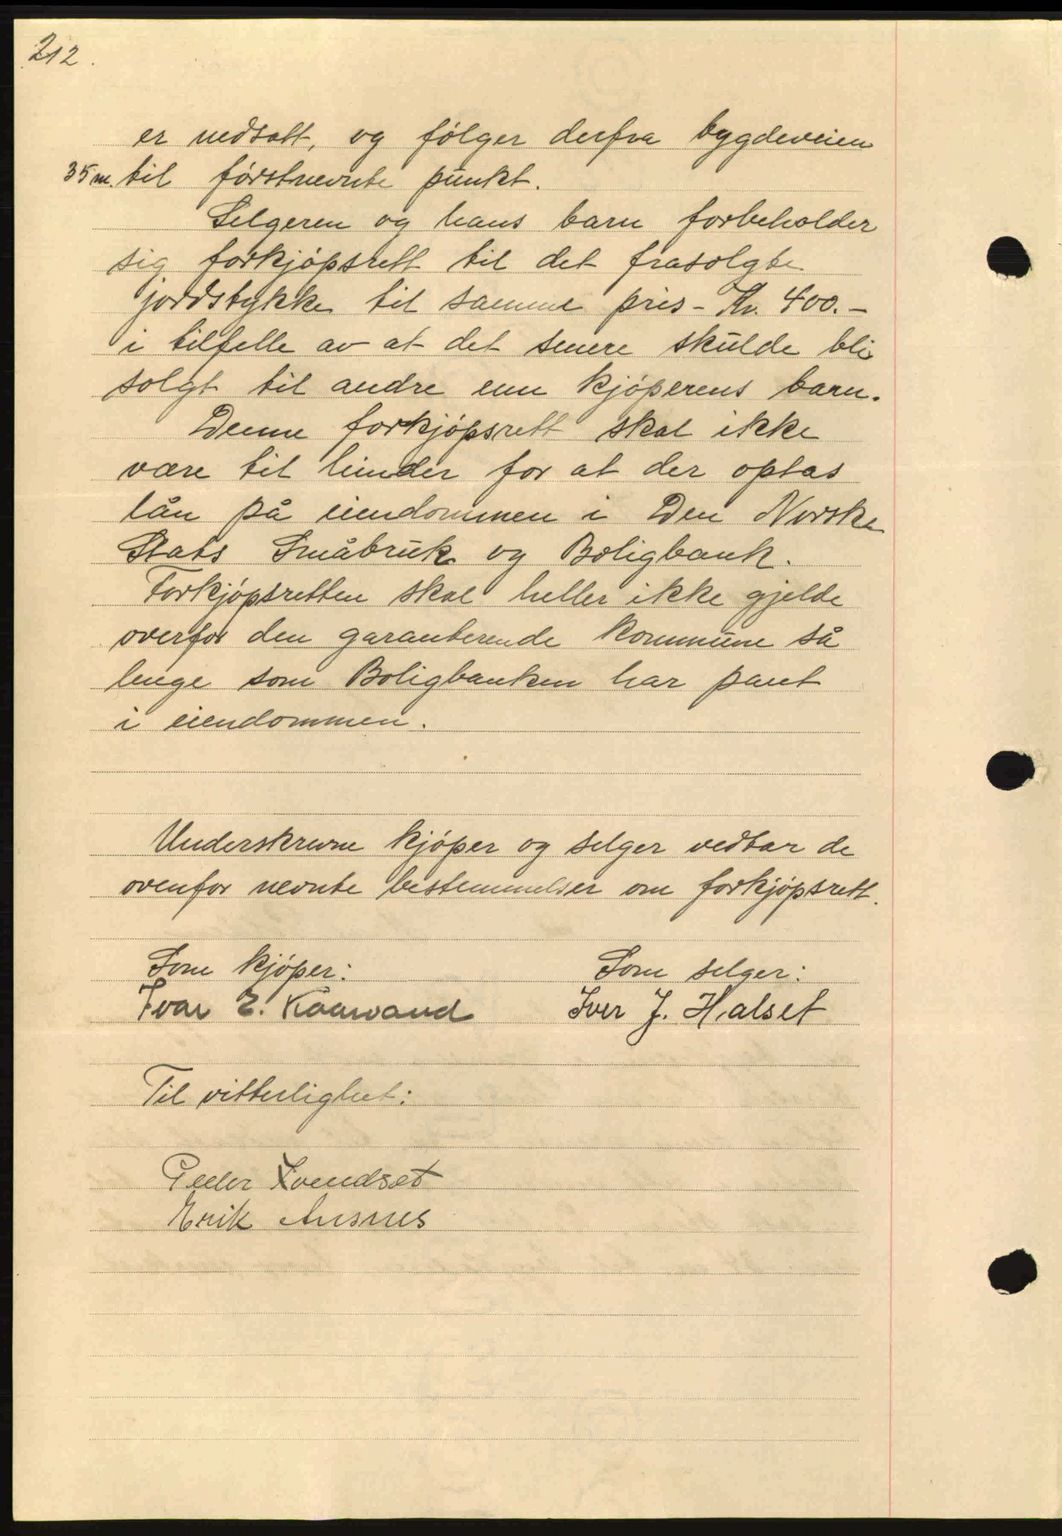 212.
er nedsatt, og følger derfra bygdeveien
35 m. til førstnevnte punkt.
Selgeren og hans barn forbeholder
sig forkjøpsrett til det frasolgte
jordstykke til samme pris - Kr. 400.-
i tilfelle av at det senere skulde bli
solgt til andre enn kjøperens barn.
Denne forkjøpsrett skal ikke
være til hinder for at der optas
lån på eiendommen i Den Norske
Stats Småbruk og Boligbank.
Forkjøpsretten skal heller ikke gjelde
overfor den garanterende kommune så
lenge som Boligbanken har pant
i eiendommen.
Underskrevne kjøper og selger vedtar de
ovenfor nevnte bestemmelser om forkjøpsrett.
Som kjøper: Som selger:
Ivar E. Kaarvand Iver J. Halset
Til vitterlighet:
Peder Svendset
Erik Aasnes